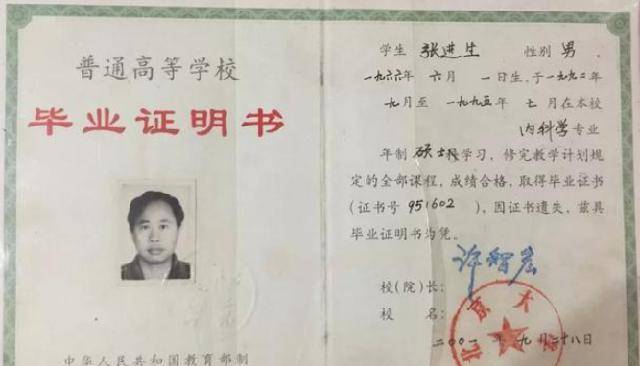 普通高等学校
毕业证明书
中华人民共和国教育部制
学生 张进生 性别 男
一九六六年 六月 一日生,于一九九二年
九月至 一九九五年 七月在本校
内科学专业
年制 硕士班学习,修完教学计划规
定的全部课程,成绩合格,取得毕业证书
(证书号 951602 ),因证书遗失,兹具
毕业证明书为凭。
许智宏
校(院)长:
校 名:
北京大学
二〇〇一年 九月二十八日